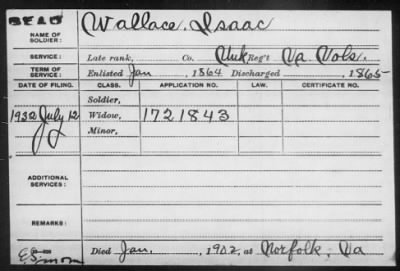 DEAD
Wallace, Isaac
NAME OF SOLDIER:
SERVICE: Late rank, Co. Unk Reg't Va Vols.
TERM OF SERVICE: Enlisted Jan 1864 Discharged , 1865
DATE OF FILING. CLASS. APPLICATION NO. LAW. CERTIFICATE NO.
Soldier,
1932 July 12 Widow, 1721843
Minor,
ADDITIONAL SERVICES:
REMARKS:
Died Jan. , 1902, at Norfolk, Va